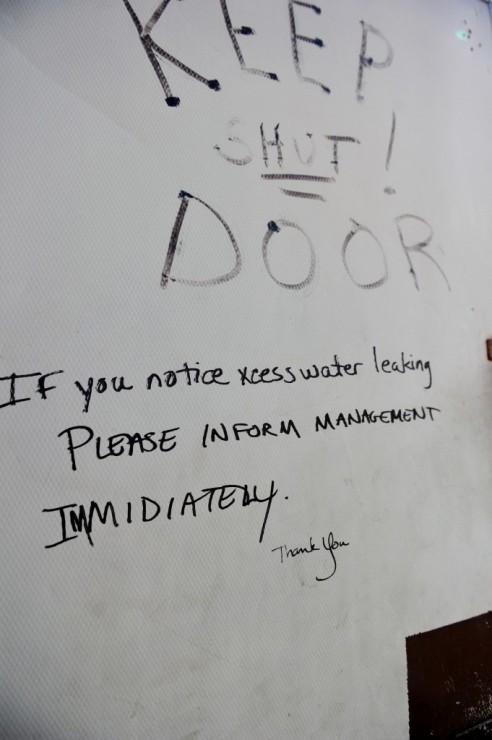 KEEP
SHUT!
DOOR
IF you notice xcess water leaking
PLEASE INFORM MANAGEMENT
IMMIDIATELY.
Thank You